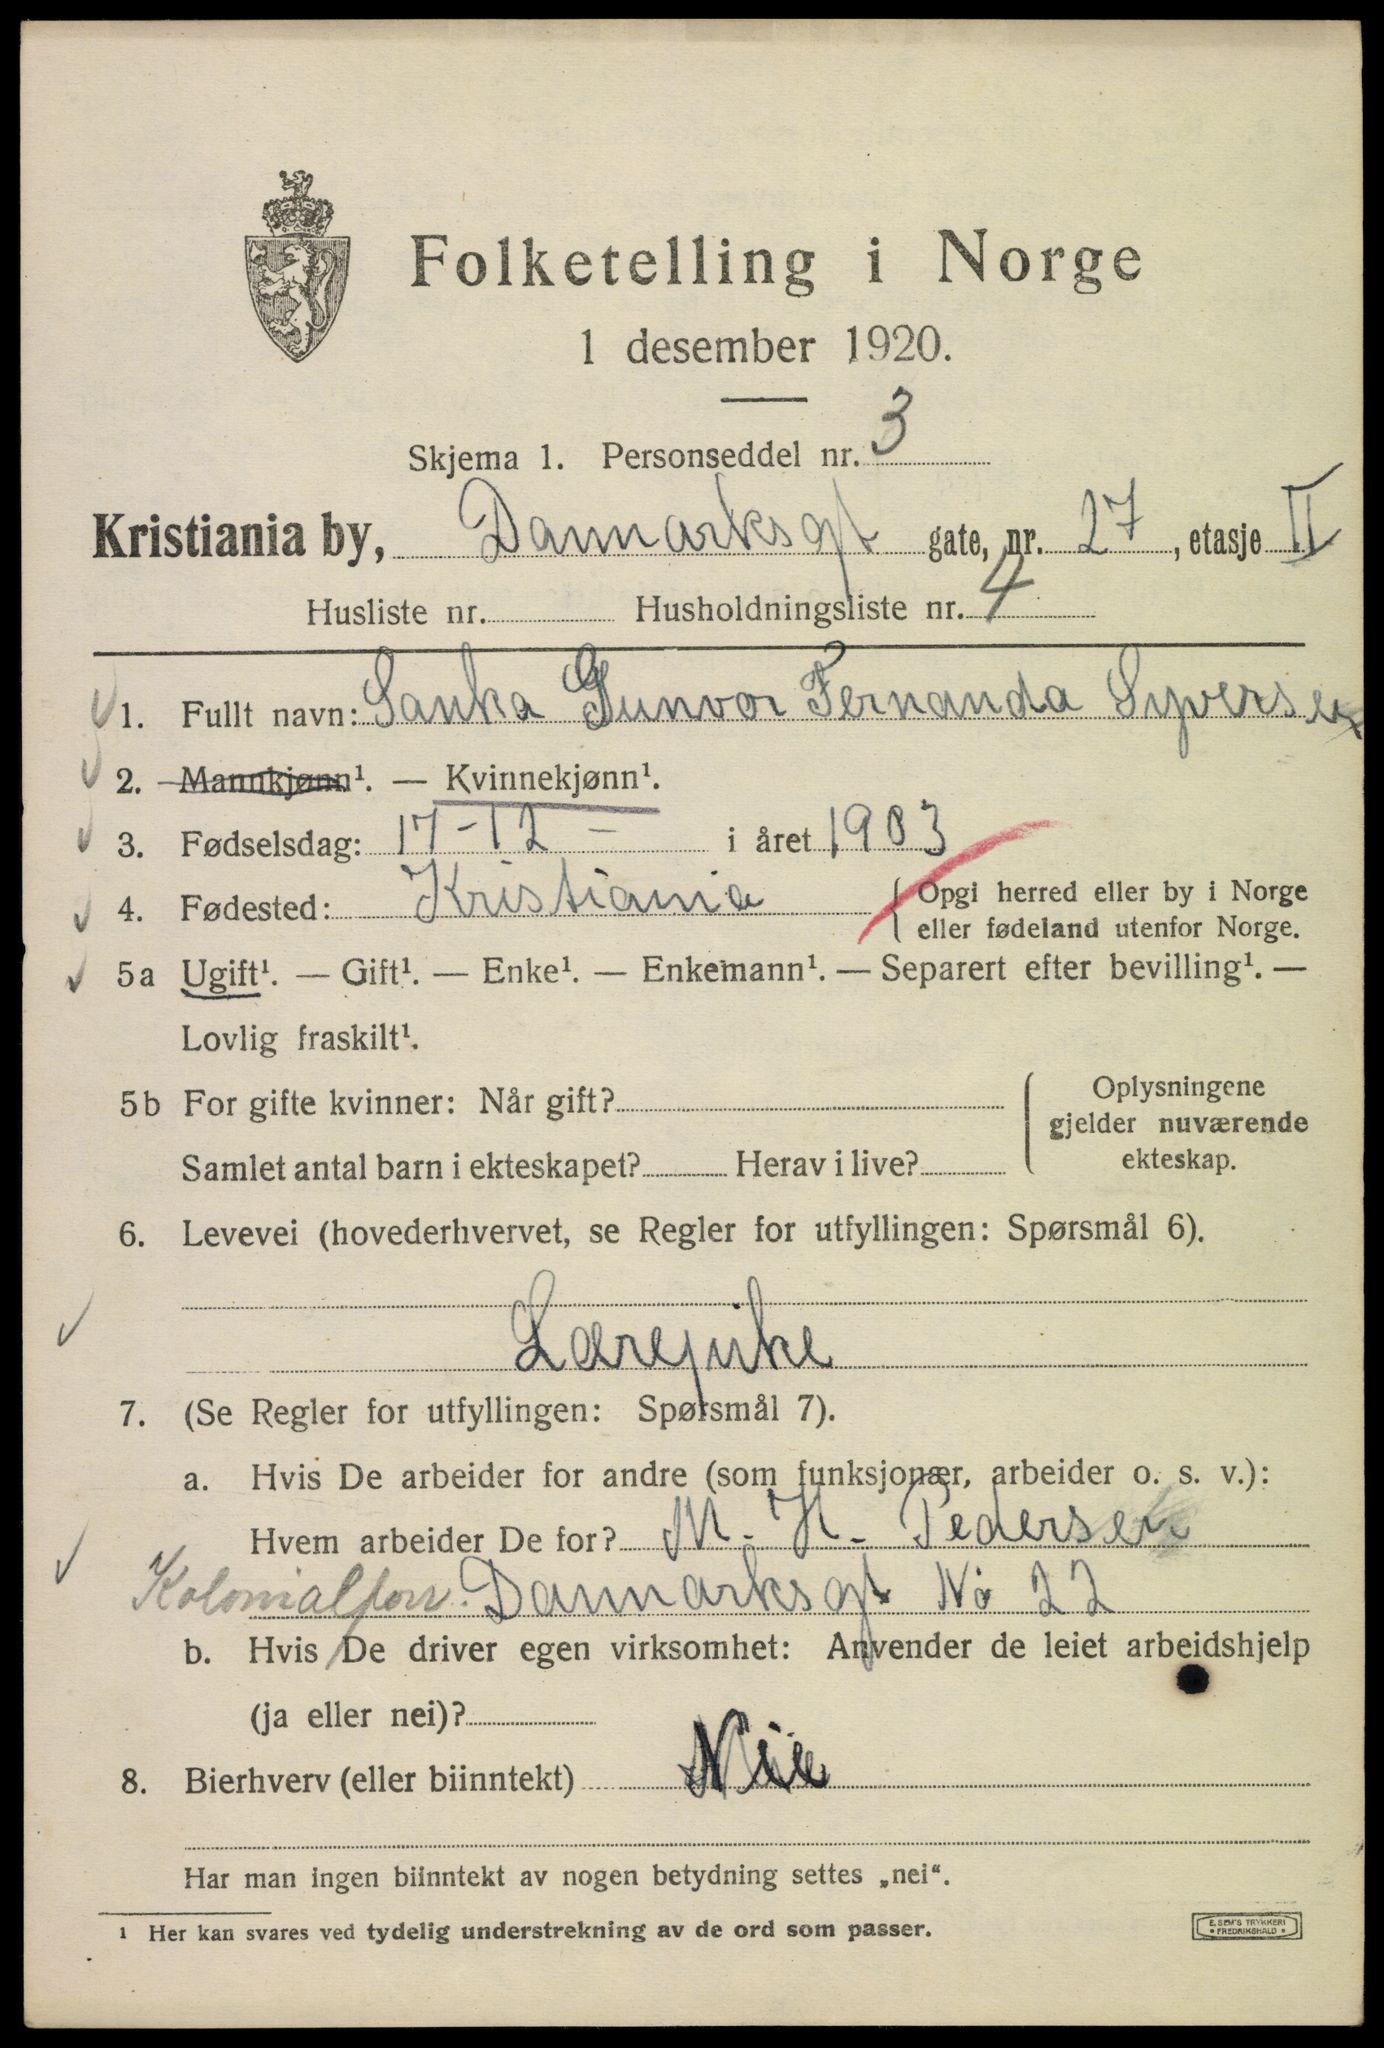 Folketelling i Norge
1 desember 1920.
Skjema 1. Personseddel nr. 3
Kristiania by, Danmarksgt gate, nr. 27, etasje II
Husliste nr. Husholdningsliste nr. 4
1. Fullt navn: Sanka Gunvor Fernanda Syversen
2. Mannkjønn¹. — Kvinnekjønn¹.
3. Fødselsdag: 17-12 - i året 1903
4. Fødested: Kristiania { Opgi herred eller by i Norge
eller fødeland utenfor Norge.
5a Ugift¹. — Gift¹. — Enke¹. — Enkemann¹. — Separert efter bevilling¹. —
Lovlig fraskilt¹.
5b For gifte kvinner: Når gift? { Oplysningene
gjelder nuværende
Samlet antal barn i ekteskapet? Herav i live? ekteskap.
6. Levevei (hovederhvervet, se Regler for utfyllingen: Spørsmål 6).
Lærepike
7. (Se Regler for utfyllingen: Spørsmål 7).
a. Hvis De arbeider for andre (som funksjonær, arbeider o. s. v.):
Hvem arbeider De for? M. H. Pedersen
Kolonialforr. Danmarksgt No 22
b. Hvis De driver egen virksomhet: Anvender de leiet arbeidshjelp
(ja eller nei)?
8. Bierhverv (eller biinntekt) Nei
Har man ingen biinntekt av nogen betydning settes „nei“.
1 Her kan svares ved tydelig understrekning av de ord som passer.
E. SEM'S TRYKKERI
• FREDRIKSHALD •